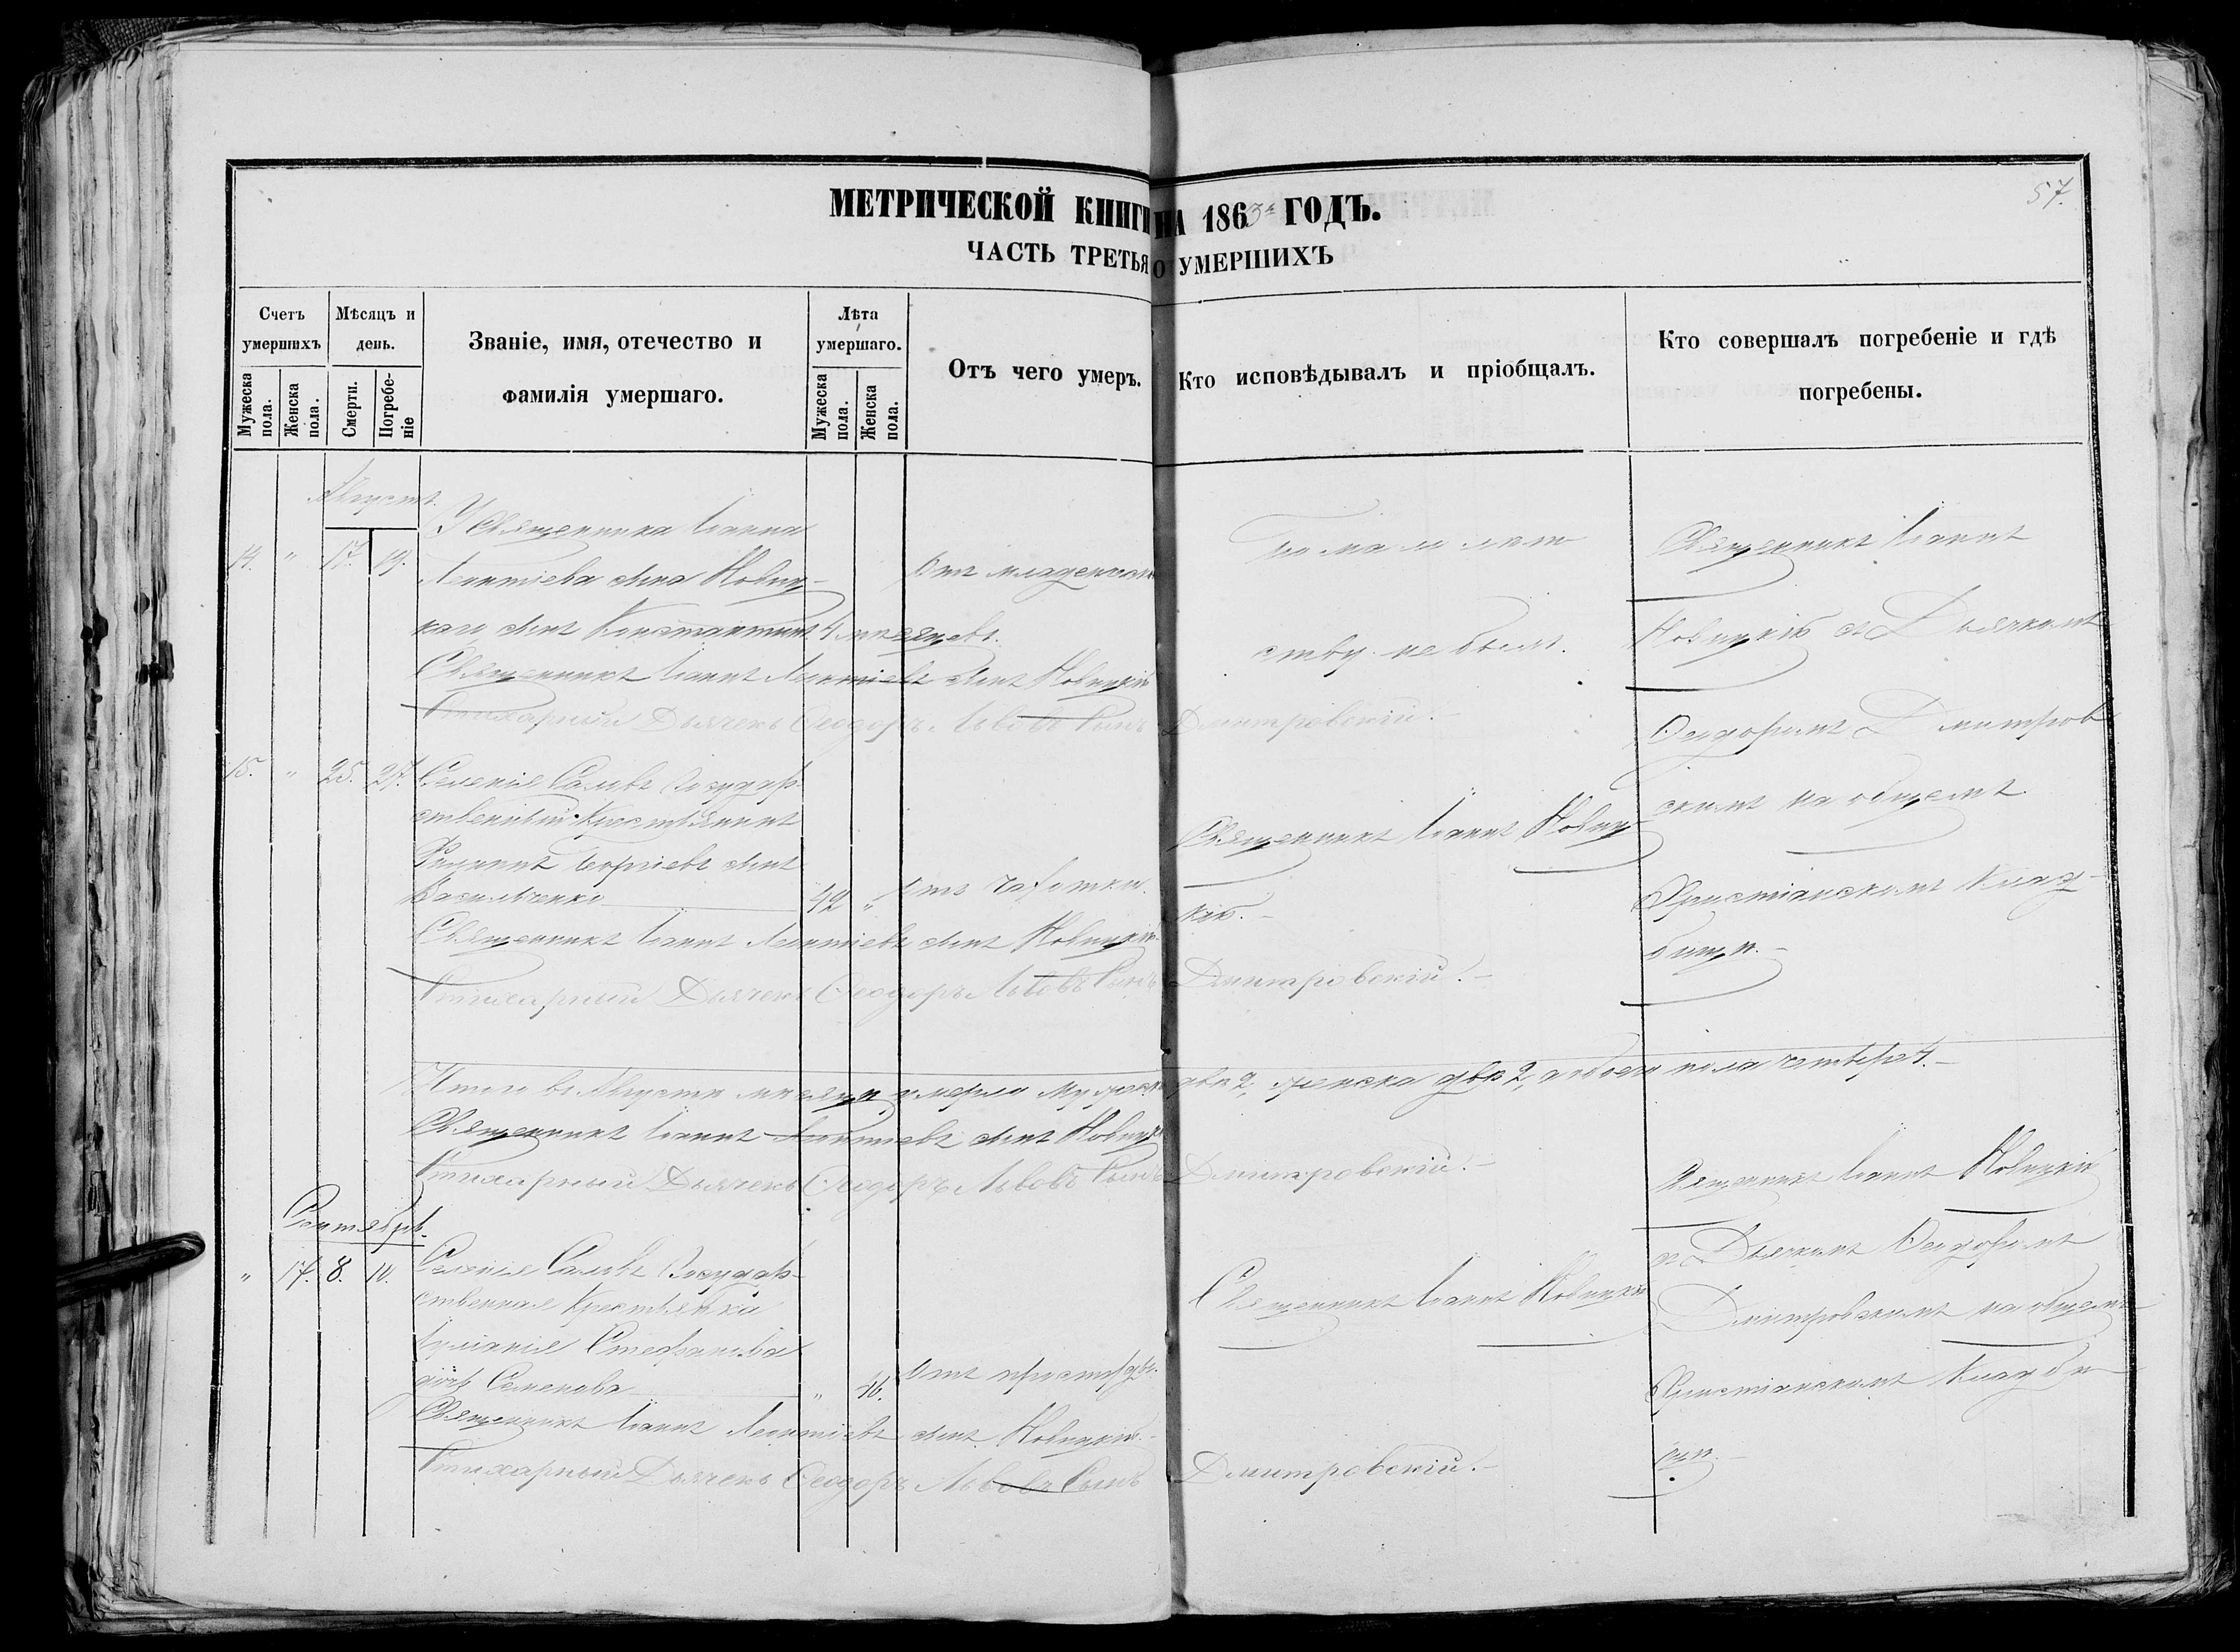 57.
МЕТРИЧЕСКОЙ КНИГИ НА 1863й ГОДЪ.
ЧАСТЬ ТРЕТЬЯ О УМЕРШИХЪ
Счетъ умершихъ
Мужеска пола.
Женска пола.
Мѣсяцъ и день.
Смерти.
Погребеніе
Званіе, имя, отечество и фамилія умершаго.
Лѣта умершаго.
Мужеска пола.
Женска пола.
Отъ чего умеръ.
Кто исповѣдывалъ и пріобщалъ.
Кто совершалъ погребеніе и гдѣ погребены.
Августъ.
14. " 17. 19.
У Священника Іоанна
Леонтіева сына Новиц-
каго сынъ Константинъ 4 мѣсяцевъ.
Отъ младенческ
По мало лѣт
ству не былъ.
Священникъ Іоаннъ
Новицкій съ Дьячкомъ
Ѳеодоромъ Дмитров
скимъ на общемъ
Христіанскомъ Клад-
бищѣ.
Священникъ Іоаннъ Леонтіевъ сынъ Новицкій
Стихарный Дьячекъ Ѳеодоръ Львовъ Сынъ Дмитровскій.
15. " 25. 27.
Селенія Государ-
ственный Крестьянинъ
Филиппъ Георгіевъ сынъ
Васильченко 42 "
Отъ чахотки.
Священникъ Іоаннъ Новиц-
кій.
Священникъ Іоаннъ Леонтіевъ сынъ Новицкій.
Стихарный Дьячекъ Ѳеодоръ Львовъ Сынъ Дмитровскій.
Итого въ Августѣ мѣсяцѣ умерло мужеск два 2, женска двѣ 2, а обоего пола четверо 4.
Священникъ Іоаннъ Леонтіевъ сынъ Новицкі
Стихарный Дьячекъ Ѳеодоръ Львовъ Сынъ Дмитровскій.
Сентябрь.
" 17. 8. 10.
Селенія Государ-
ственная Крестьянка
Іуліанія Стефанова
дочь Семенова " 46.
Отъ простуды.
Священникъ Іоаннъ Новицкій
Священникъ Іоаннъ Новицкій
съ Дьячкомъ Ѳеодоромъ
Дмитровскимъ на общемъ
Христіанскомъ Кладби
щѣ.
Священникъ Іоаннъ Леонтіевъ сынъ Новицкій.
Стихарный Дьячекъ Ѳеодоръ Львовъ Сынъ Дмитровскій.